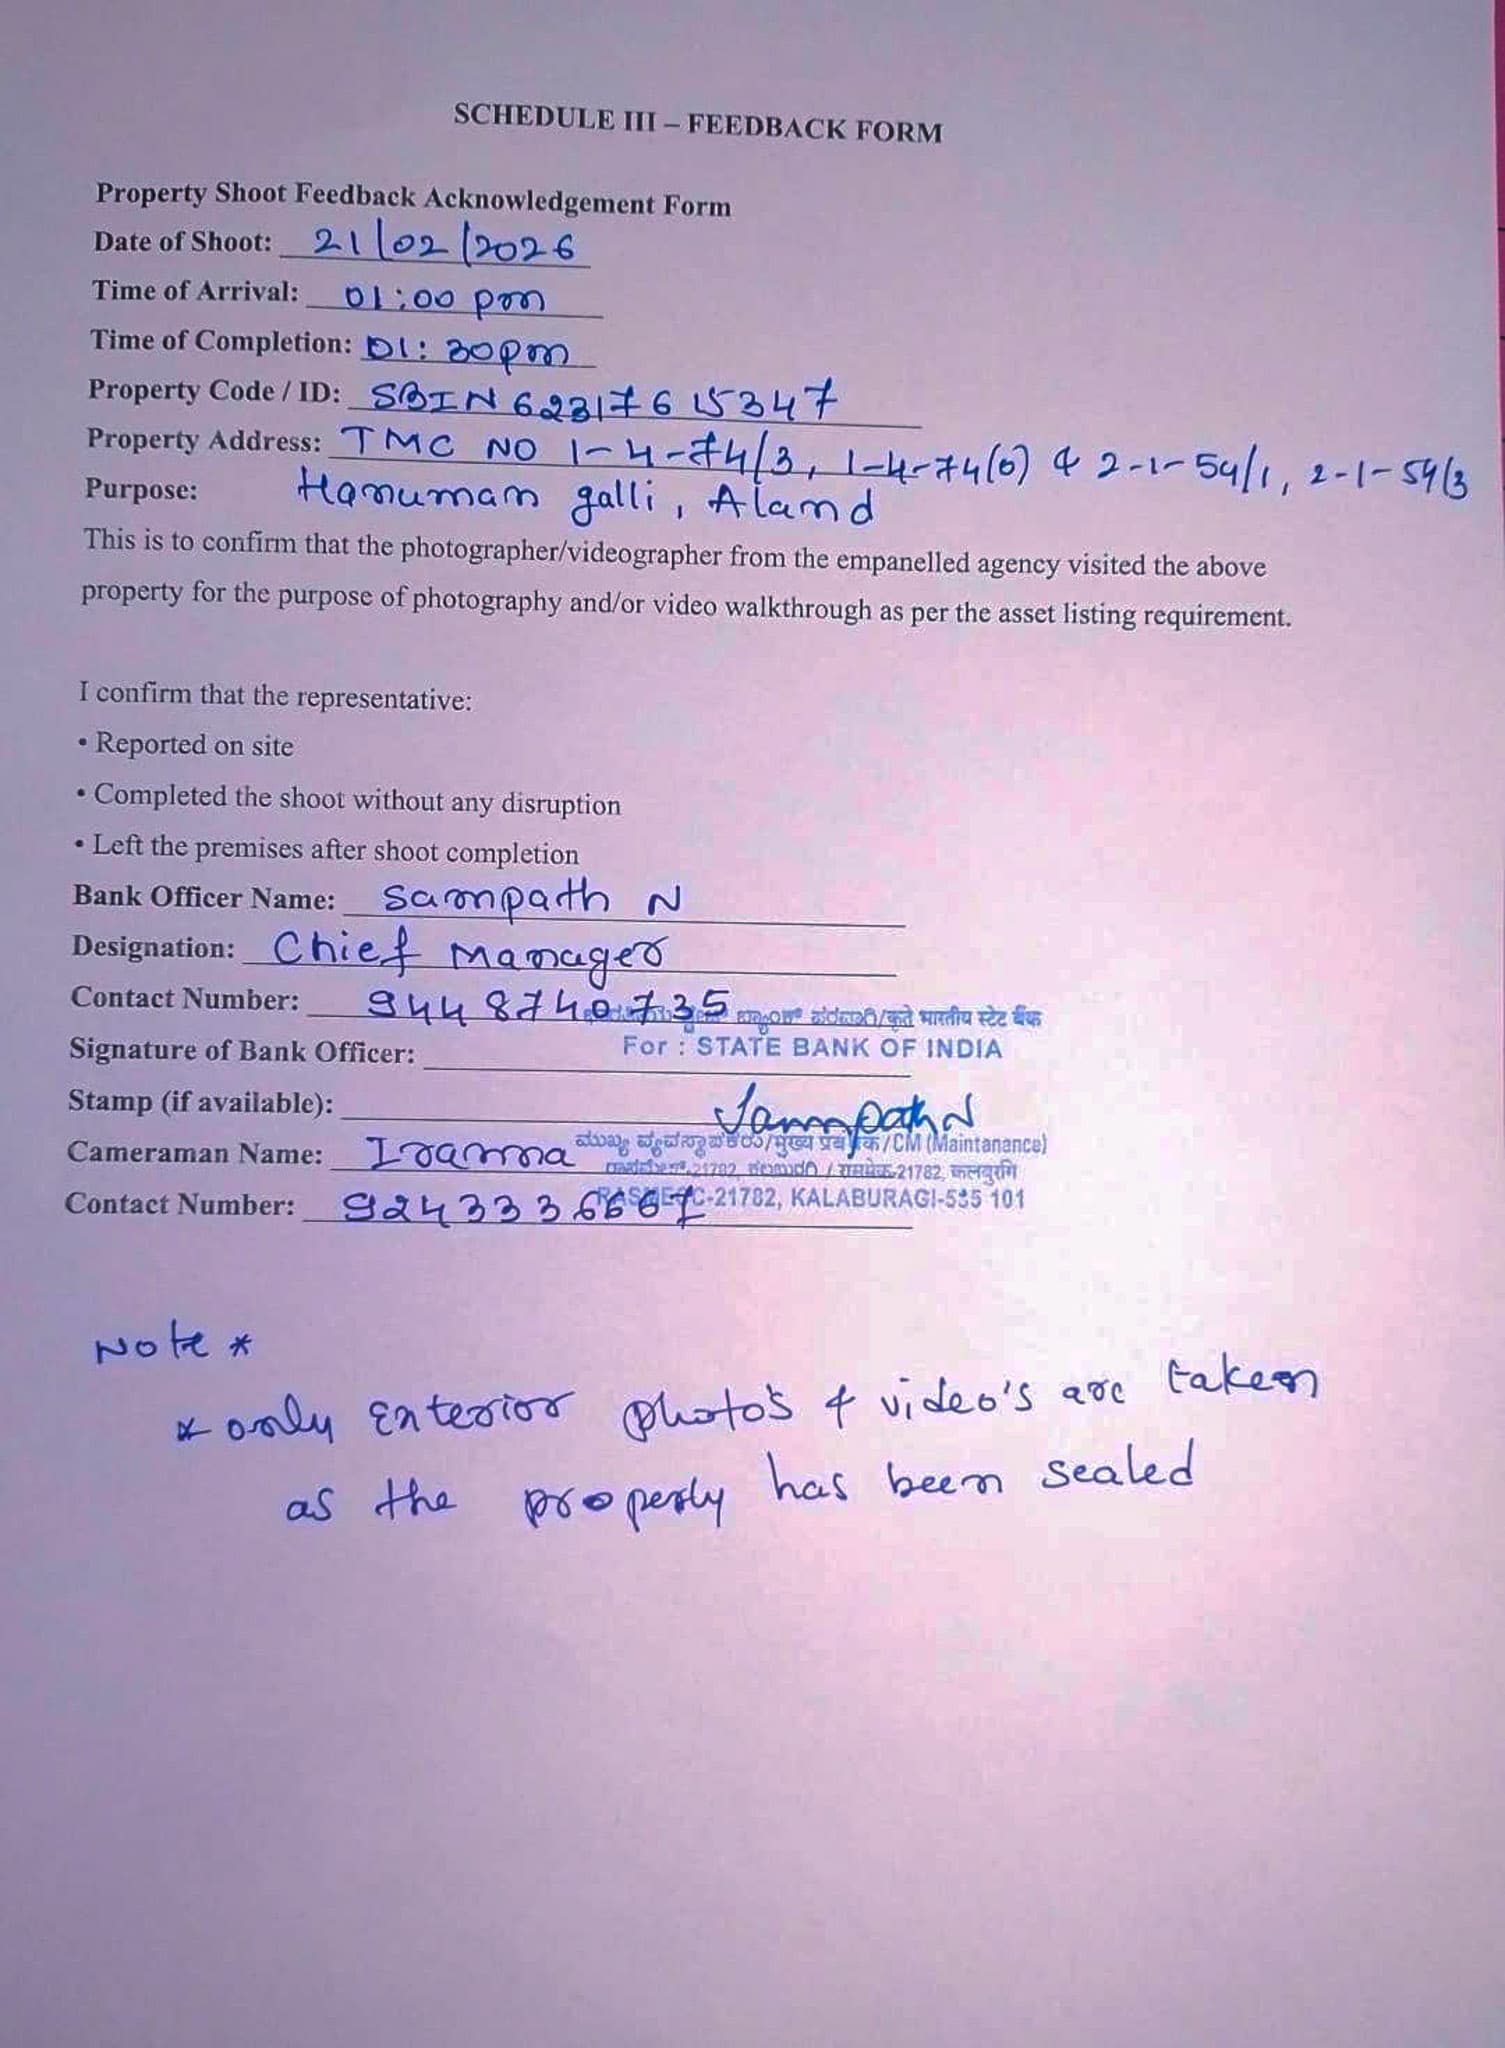 SCHEDULE III – FEEDBACK FORM
Property Shoot Feedback Acknowledgement Form
Date of Shoot: 21/02/2026
Time of Arrival: 01:00 pm
Time of Completion: 01:30pm
Property Code / ID: SBIN62317615347
Property Address: TMC NO 1-4-74/3, 1-4-74(6) & 2-1-54/1, 2-1-54/3
Purpose: Hanuman galli, Aland
This is to confirm that the photographer/videographer from the empanelled agency visited the above
property for the purpose of photography and/or video walkthrough as per the asset listing requirement.
I confirm that the representative:
• Reported on site
• Completed the shoot without any disruption
• Left the premises after shoot completion
Bank Officer Name: Sampath N
Designation: Chief Manager
Contact Number: 9448740735 ಪರವಾಗಿ/कृते भारतीय स्टेट बैंक
Signature of Bank Officer: For : STATE BANK OF INDIA
Stamp (if available): Sampath N
Cameraman Name: Iranna ಮುಖ್ಯ ವ್ಯವಸ್ಥಾಪಕರು/मुख्य प्रबंधक/CM (Maintanance)
21782, ಕಲಬುರಗಿ / 21782, कलबुरगि
Contact Number: 9243336667 RASMECC-21782, KALABURAGI-585 101
Note *
* only Exterior photo's & video's are taken
as the property has been sealed